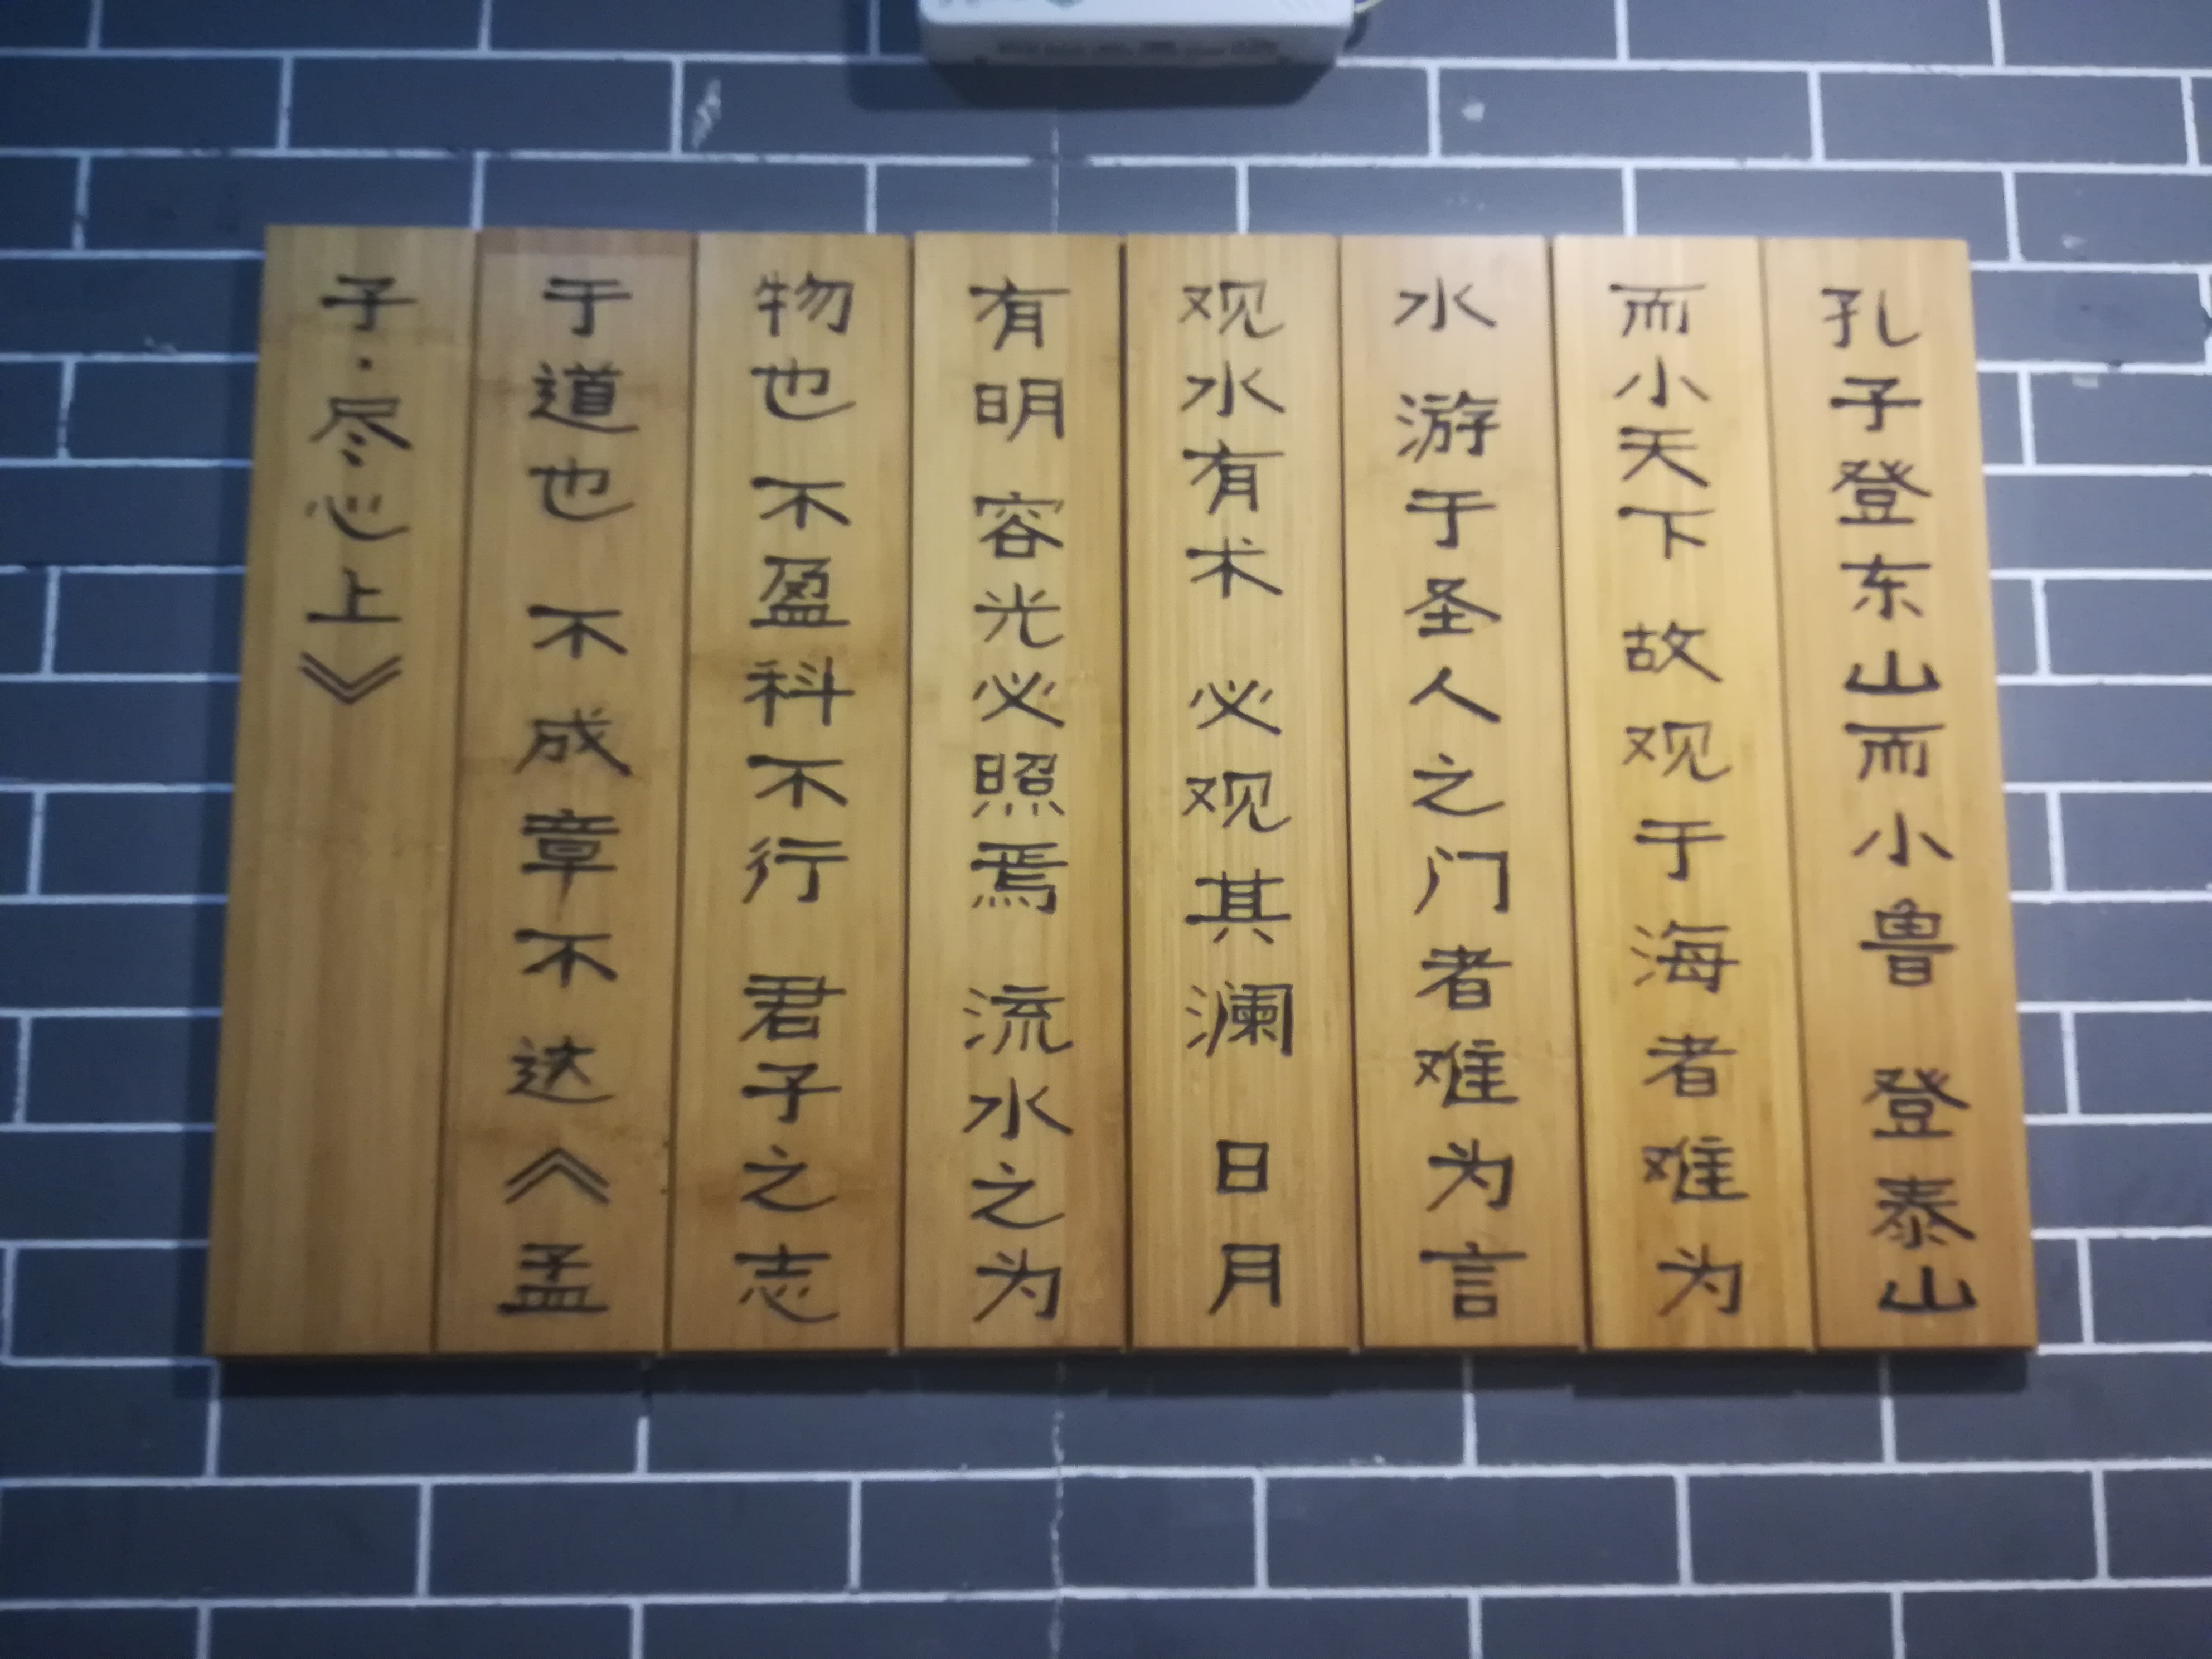 孔子登东山而小鲁 登泰山
而小天下 故观于海者难为
水 游于圣人之门者难为言
观水有术 必观其澜 日月
有明 容光必照焉 流水之为
物也 不盈科不行 君子之志
于道也 不成章不达《孟
子·尽心上》